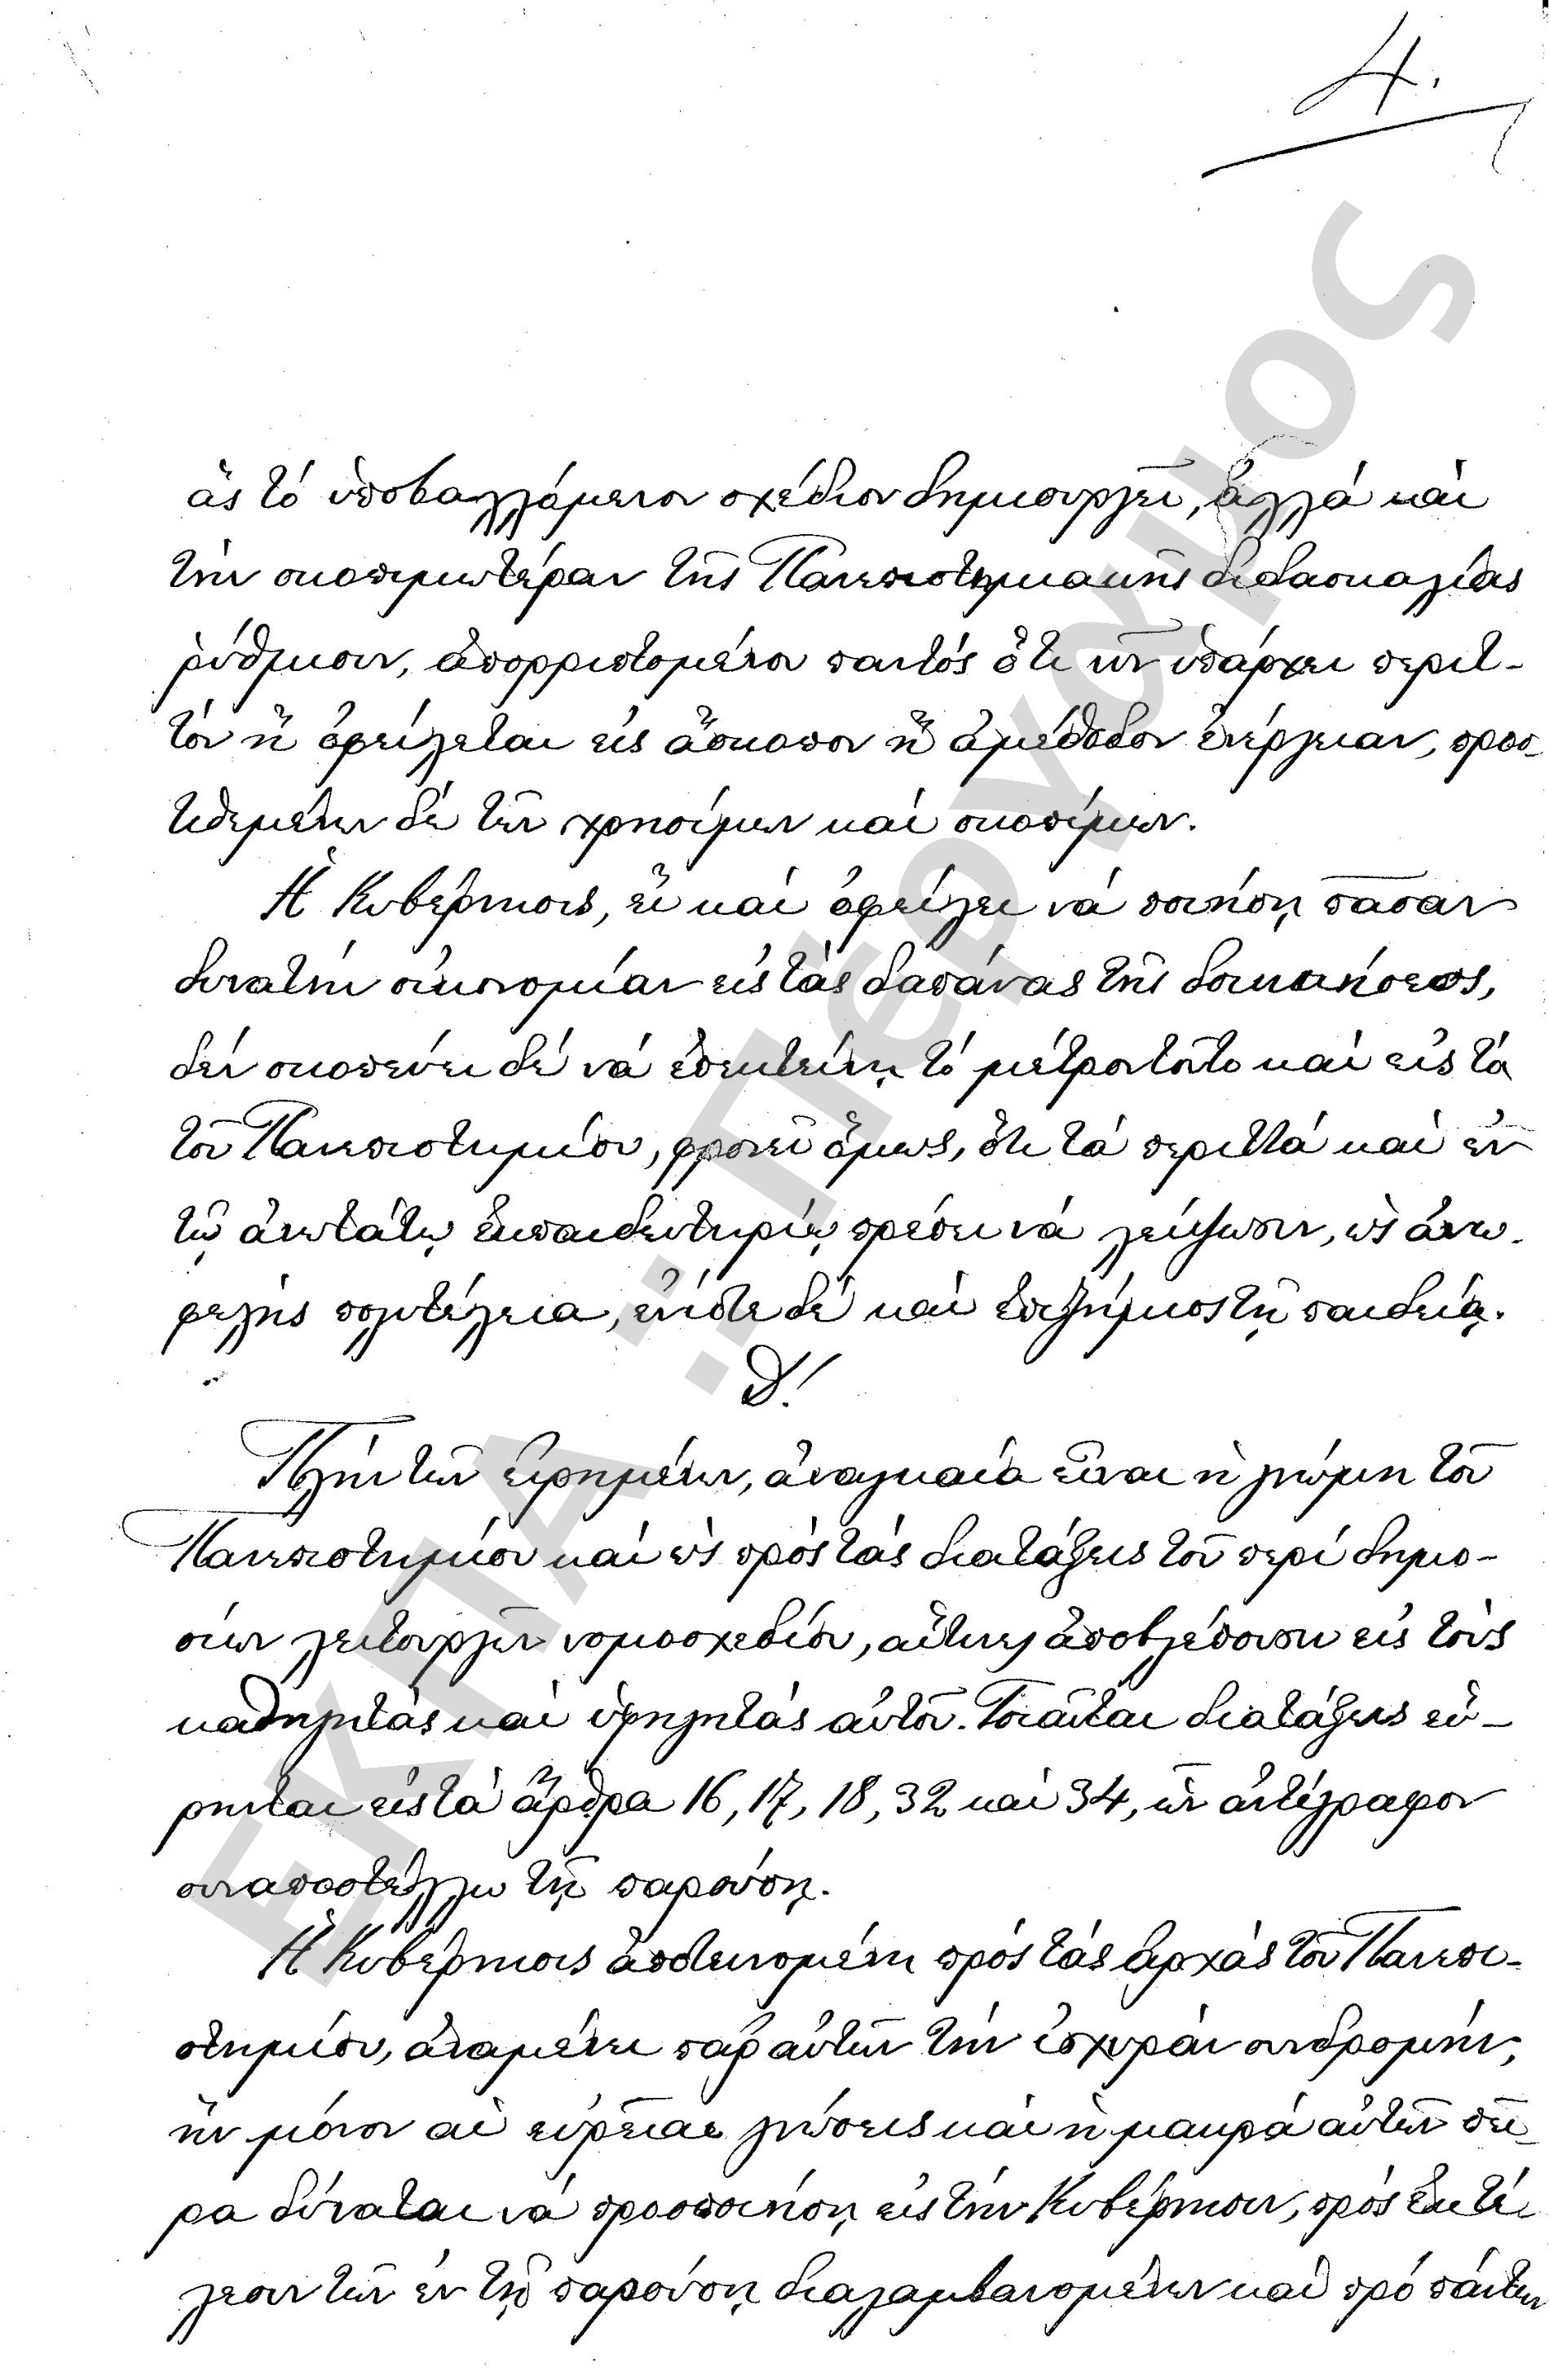 4.
ἃς τό ὑποβαλλόμενον σχέδιον δημιουργεῖ, ἀλλά καί
τήν σκοπιμωτέραν τῆς Πανεπιστημιακῆς διδασκαλίας
ρύθμισιν, ἀπορριπτομένου παντός ὅτι νῦν ὑπάρχει περιτ-
τόν ἤ ὀφείλεται εἰς ἄσκοπον ἤ ἀμέθοδον ἐνέργειαν, προσ-
τιθεμένων δέ τῶν χρησίμων καί σκοπίμων.
Ἡ Κυβέρνησις, εἰ καί ὀφείλει νά ποιήσῃ πᾶσαν
δυνατήν οἰκονομίαν εἰς τάς δαπάνας τῆς διοικήσεως,
δέν σκοπεύει δέ νά ἐπεκτείνῃ τό μέτρον τοῦτο καί εἰς τά
τοῦ Πανεπιστημίου, φρονεῖ ὅμως, ὅτι τά περιττά καί ἐν
τῷ ἀνωτάτῳ ἐκπαιδευτηρίῳ πρέπει νά λείψωσιν, ὡς ἀνω-
φελής πολυτέλεια, ἐνίοτε δέ καί ἐπιζήμιος τῇ παιδείᾳ.
Δ΄.
Πλήν τῶν εἰρημένων, ἀναγκαία εἶναι ἡ γνώμη τοῦ
Πανεπιστημίου καί ὡς πρός τάς διατάξεις τοῦ περί δημο-
σίων λειτουργῶν νομοσχεδίου, αἵτινες ἀποβλέπουσιν εἰς τούς
καθηγητάς καί ὑφηγητάς αὐτοῦ. Τοιαῦται διατάξεις εὕ-
ρηνται εἰς τά ἄρθρα 16, 17, 18, 32 καί 34, ὧν ἀντίγραφον
συναποστέλλω τῇ παρούσῃ.
Ἡ Κυβέρνησις ἀποτεινομένη πρός τάς ἀρχάς τοῦ Πανεπι-
στημίου, ἀναμένει παρ' αὐτῶν τήν ἰσχυράν συνδρομήν,
ἥν μόνον αἱ εὐρεῖαι γνώσεις καί ἡ μακρά αὐτῶν πεῖ-
ρα δύναται νά προσποιήσῃ εἰς τήν Κυβέρνησιν, πρός ἐκτέ-
λεσιν τῶν ἐν τῇ παρούσῃ διαλαμβανομένων καί πρό πάντων
ΕΚΠΑ :: Πέργαμος